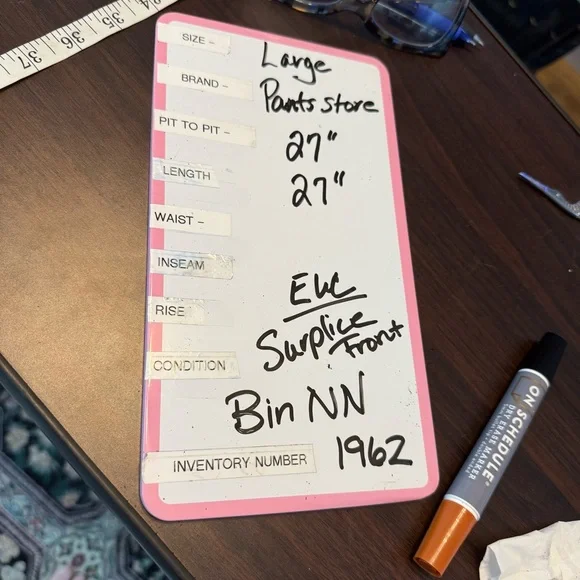 37 36 35 34
SIZE - Large
BRAND - Pants store
PIT TO PIT - 27"
LENGTH 27"
WAIST -
INSEAM
RISE
EUC
Surplice
Front
CONDITION
Bin NN
INVENTORY NUMBER 1962
ON SCHEDULE
DRY ERASE MARKER